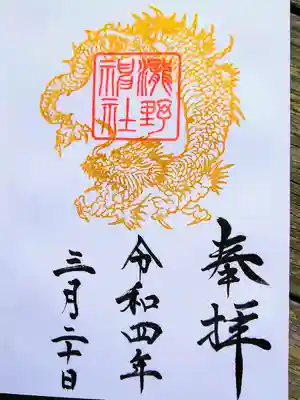 奉拝
令和四年
三月二十日
瀧野
神社